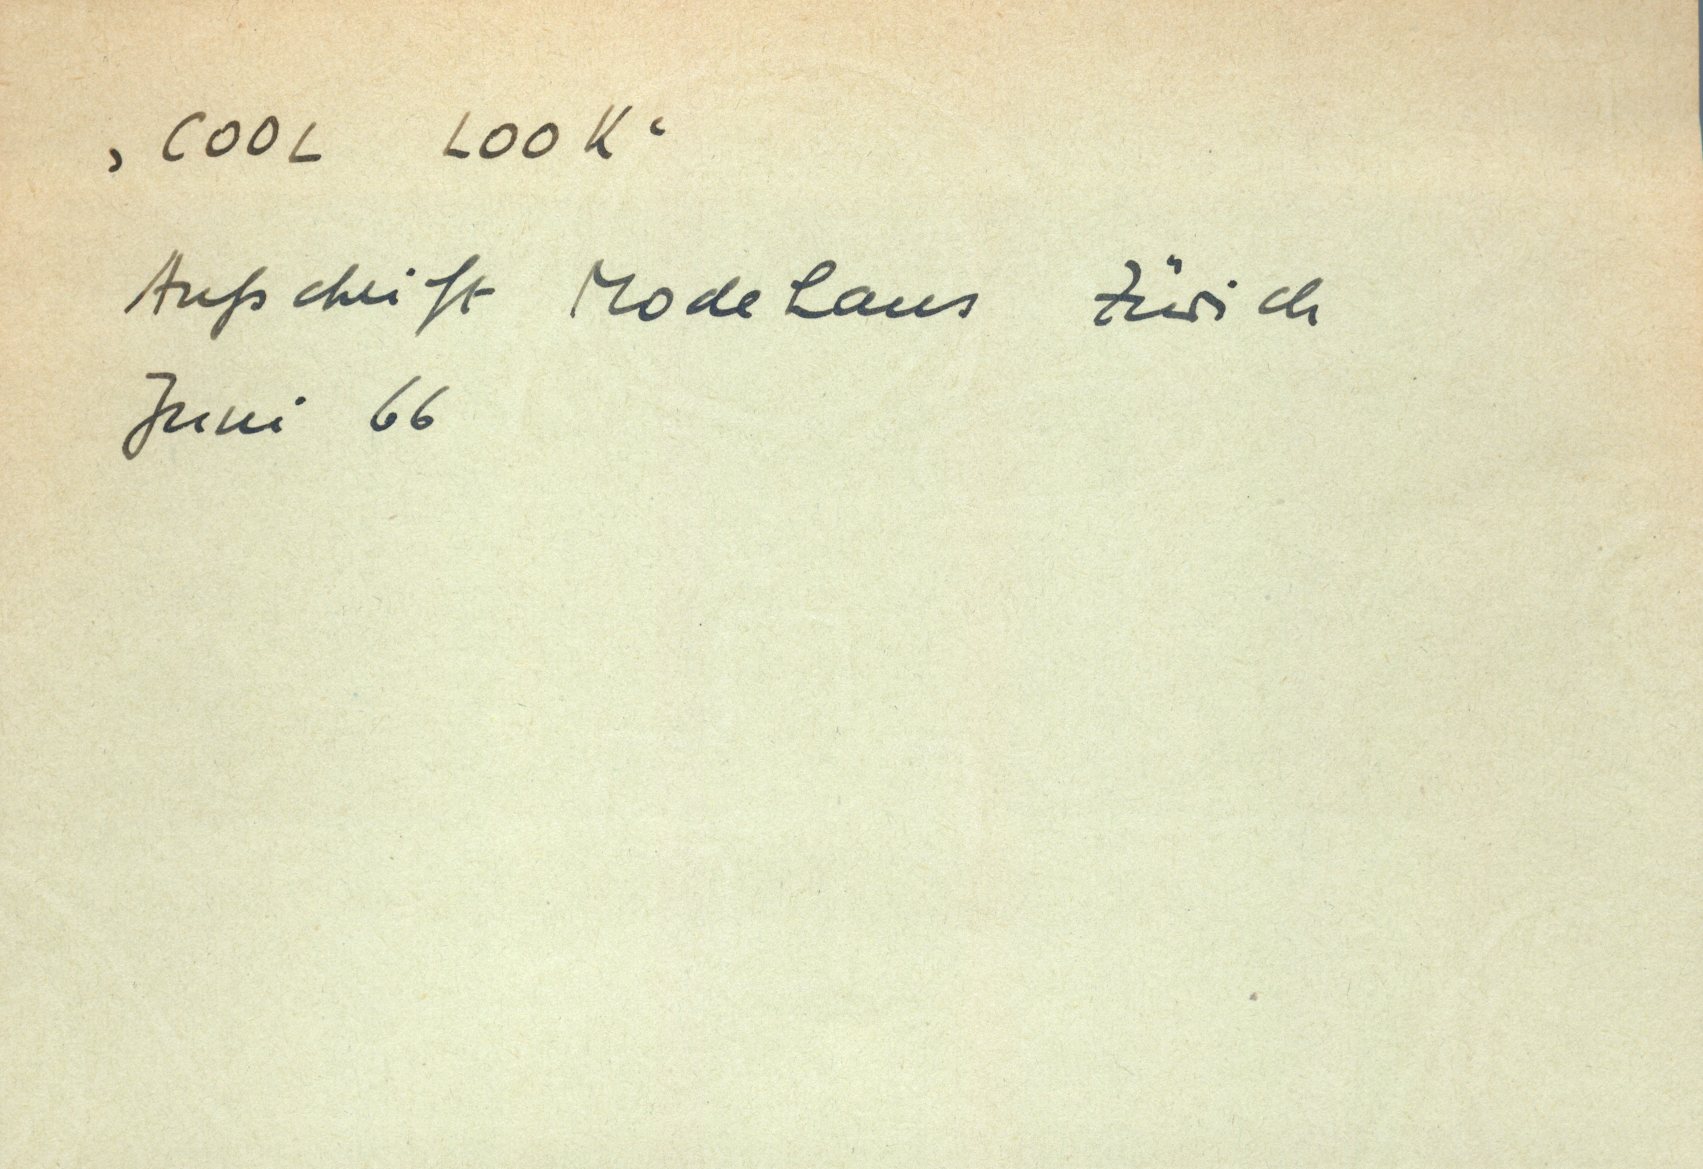 ‚COOL LOOK‘
Aufschrift Modehaus Zürich
Juni 66